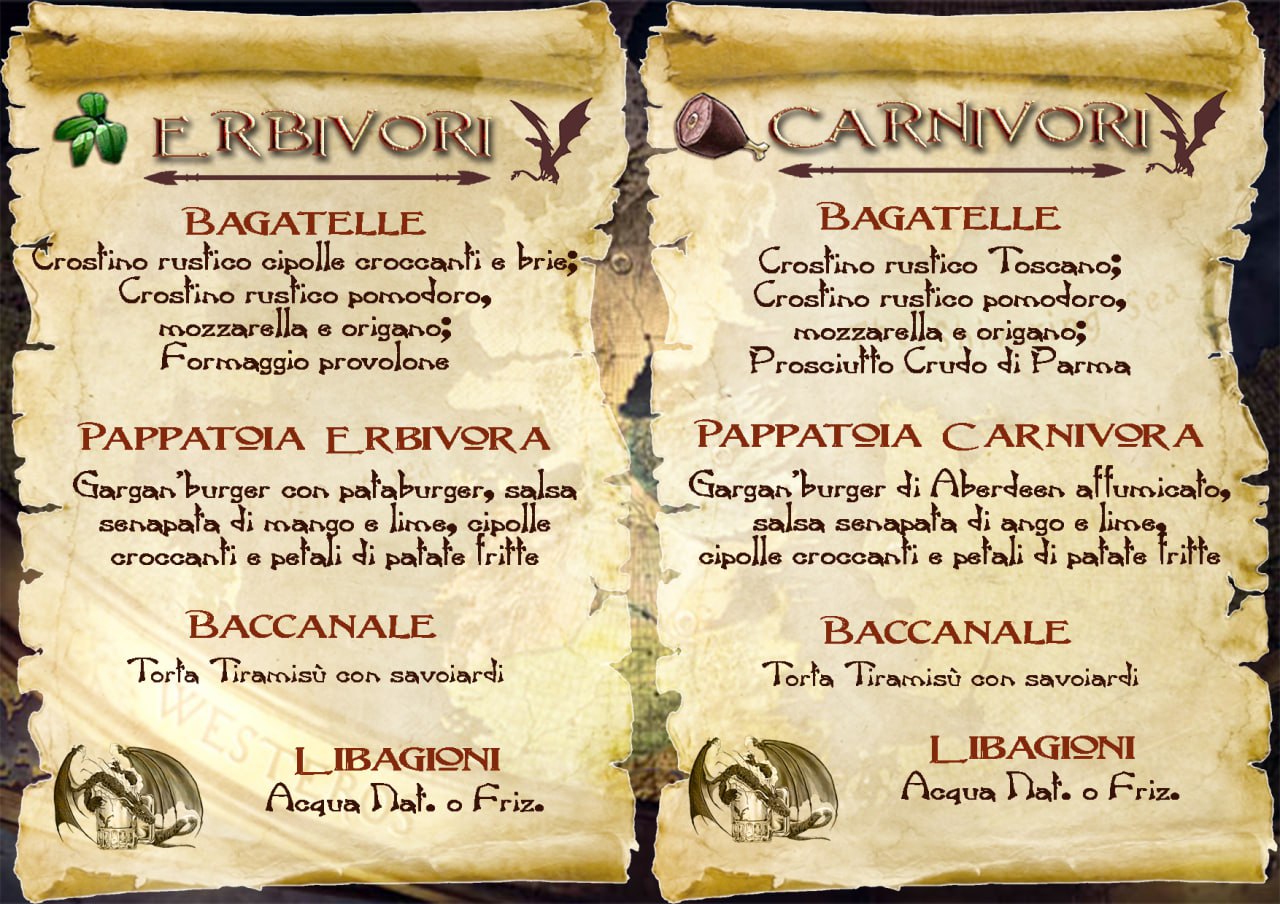 ERBIVORI
BAGATELLE
Crostino rustico cipolle croccanti e brie;
Crostino rustico pomodoro,
mozzarella e origano;
Formaggio provolone
PAPPATOIA ERBIVORA
Gargan'burger con pataburger, salsa
senapata di mango e lime, cipolle
croccanti e petali di patate fritte
BACCANALE
Torta Tiramisù con savoiardi
WESTEROS
LIBAGIONI
Acqua Nat. o Friz.
CARNIVORI
BAGATELLE
Crostino rustico Toscano;
Crostino rustico pomodoro,
mozzarella e origano;
Prosciutto Crudo di Parma
PAPPATOIA CARNIVORA
Gargan'burger di Aberdeen affumicato,
salsa senapata di ango e lime,
cipolle croccanti e petali di patate fritte
BACCANALE
Torta Tiramisù con savoiardi
LIBAGIONI
Acqua Nat. o Friz.